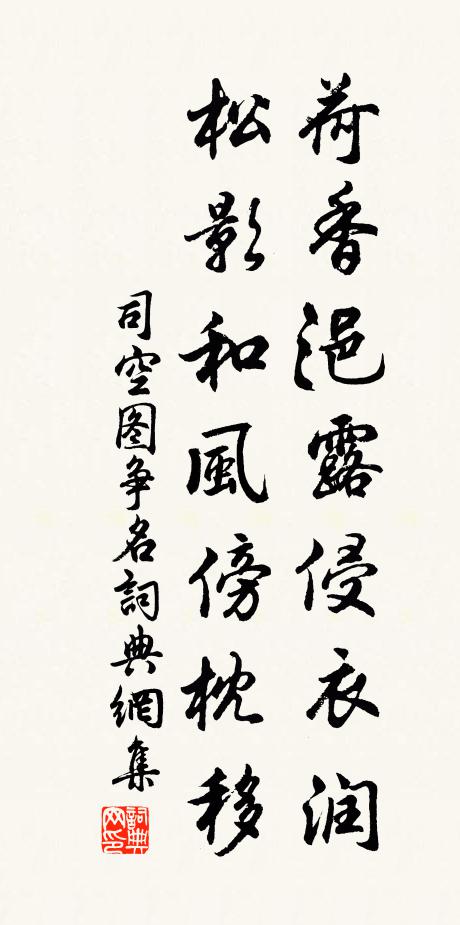 荷香浥露侵衣润
松影和風傍枕移
司空图争名詞典網集
詞典
网印